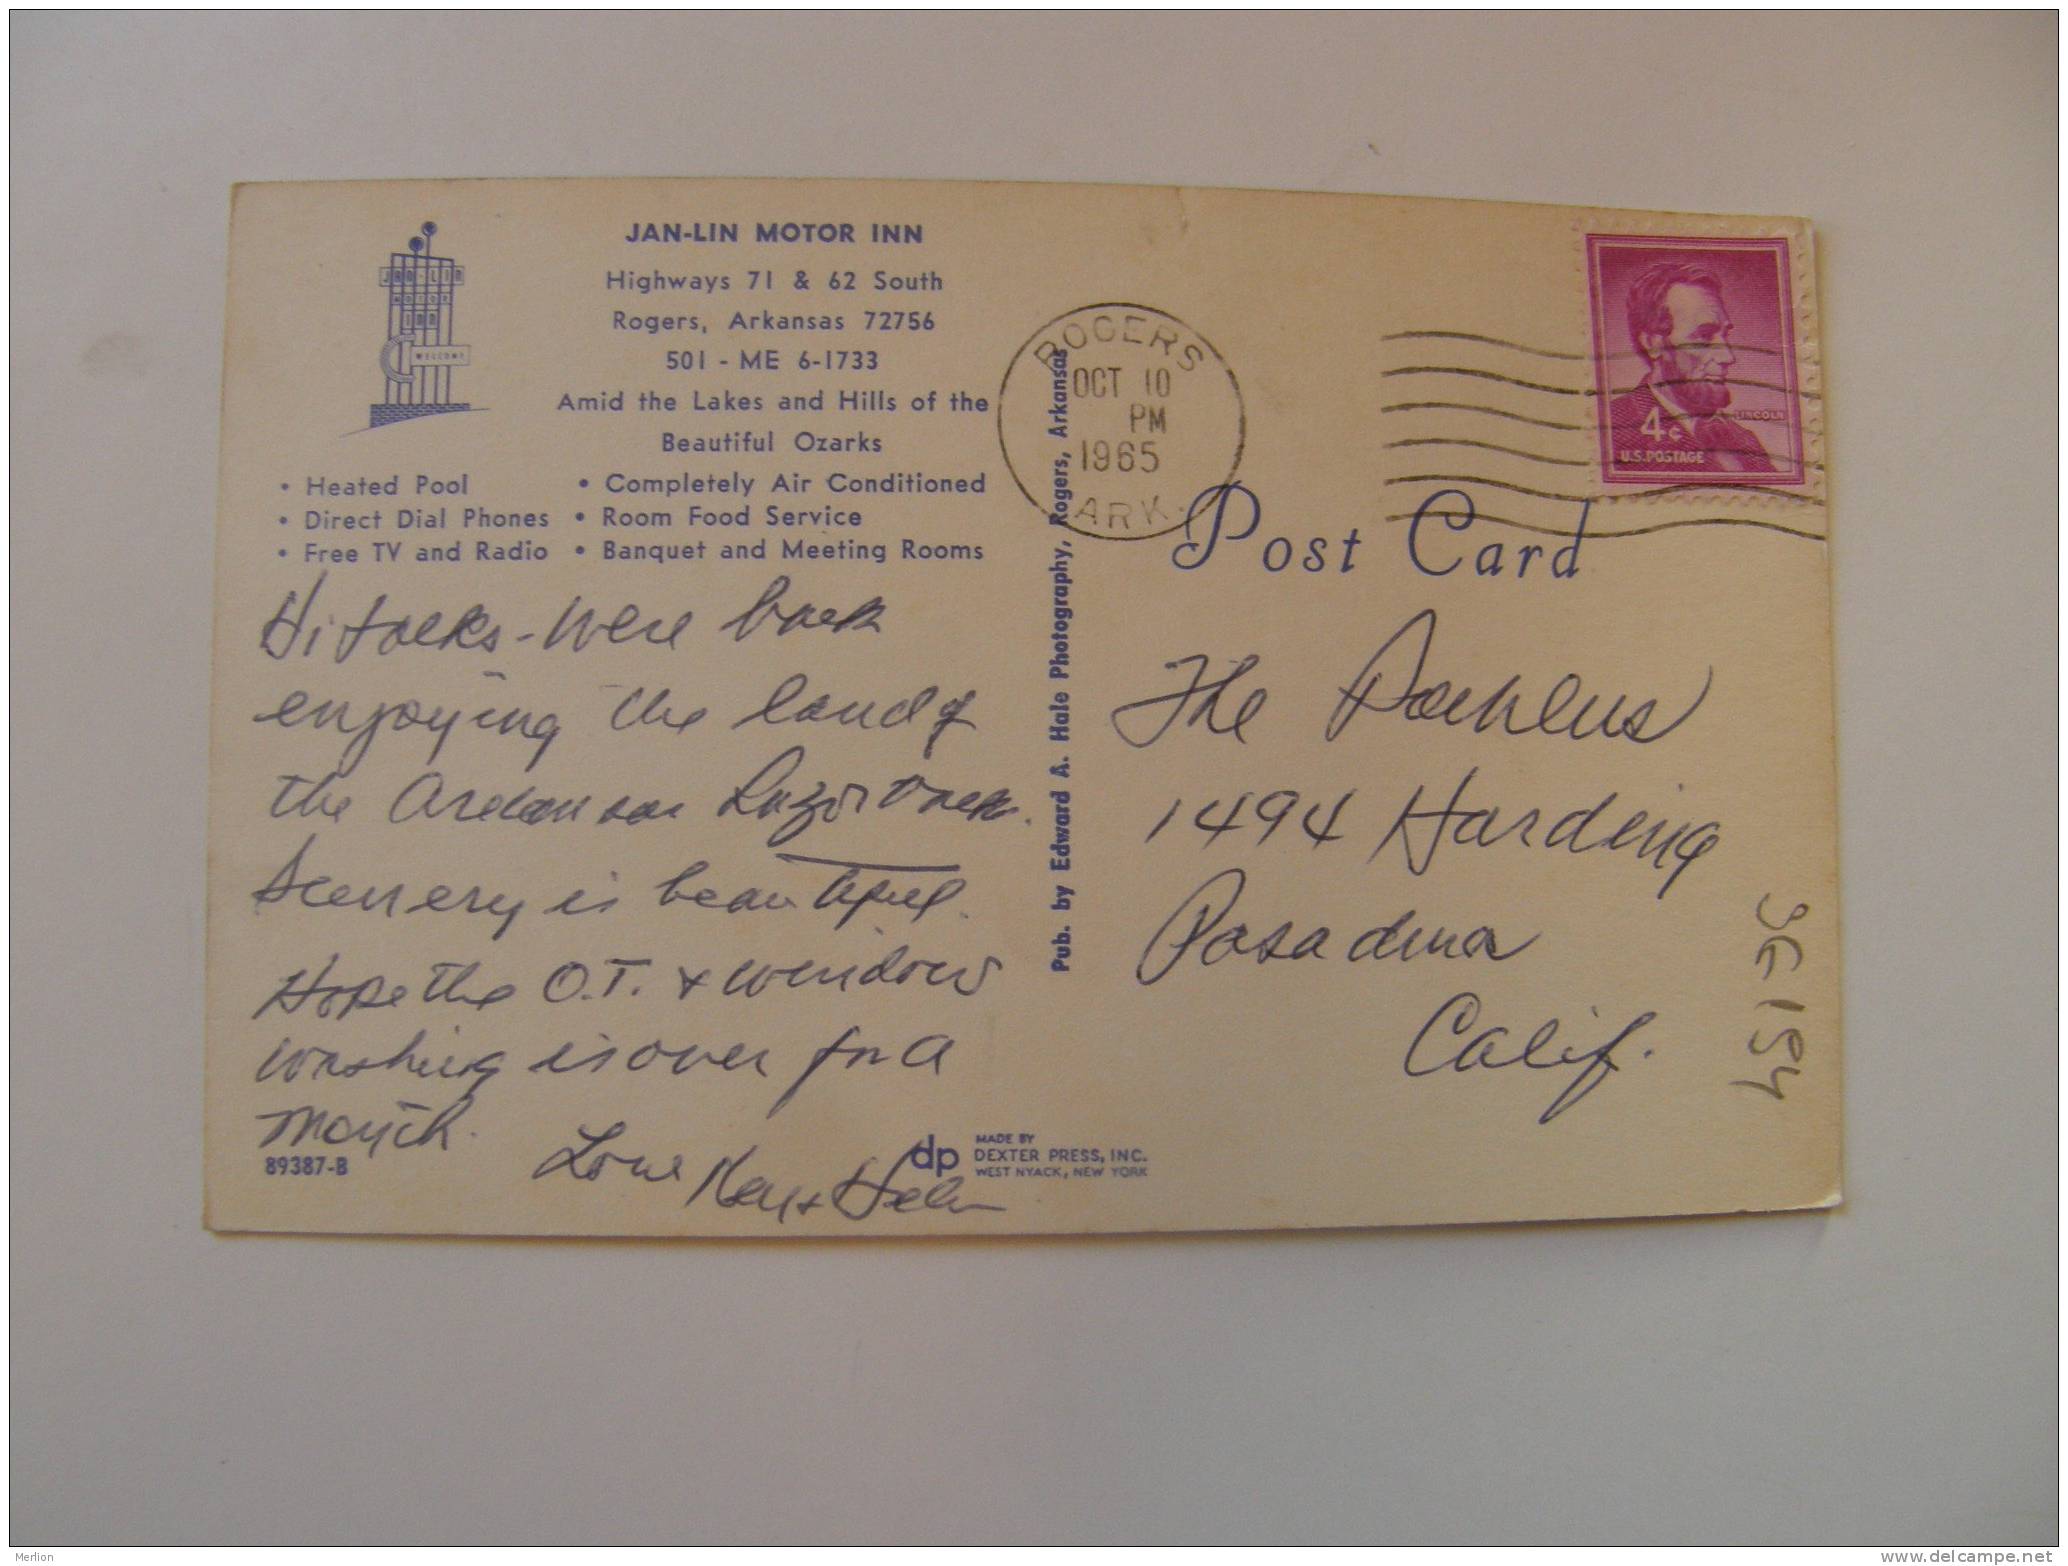 JAN-LIN MOTOR INN
Highways 71 & 62 South
Rogers, Arkansas 72756
501 - ME 6-1733
Amid the Lakes and Hills of the
Beautiful Ozarks
• Heated Pool • Completely Air Conditioned
• Direct Dial Phones • Room Food Service
• Free TV and Radio • Banquet and Meeting Rooms
JAN-LIN
MOTOR
INN
WELCOME
Hi folks - were back
enjoying the land of
the Arkansas Razorback.
Scenery is beautiful.
Hope the O.T. & window
washing is over for a
month.
Love Kay & Helen
89387-B
dp
MADE BY
DEXTER PRESS, INC.
WEST NYACK, NEW YORK
Pub. by Edward A. Hale Photography, Rogers, Arkansas
ROGERS
OCT 10
PM
1965
ARK.
LINCOLN
4¢
U.S. POSTAGE
Post Card
The
1494 Harding
Pasadena
Calif.
Merlion
www.delcampe.net